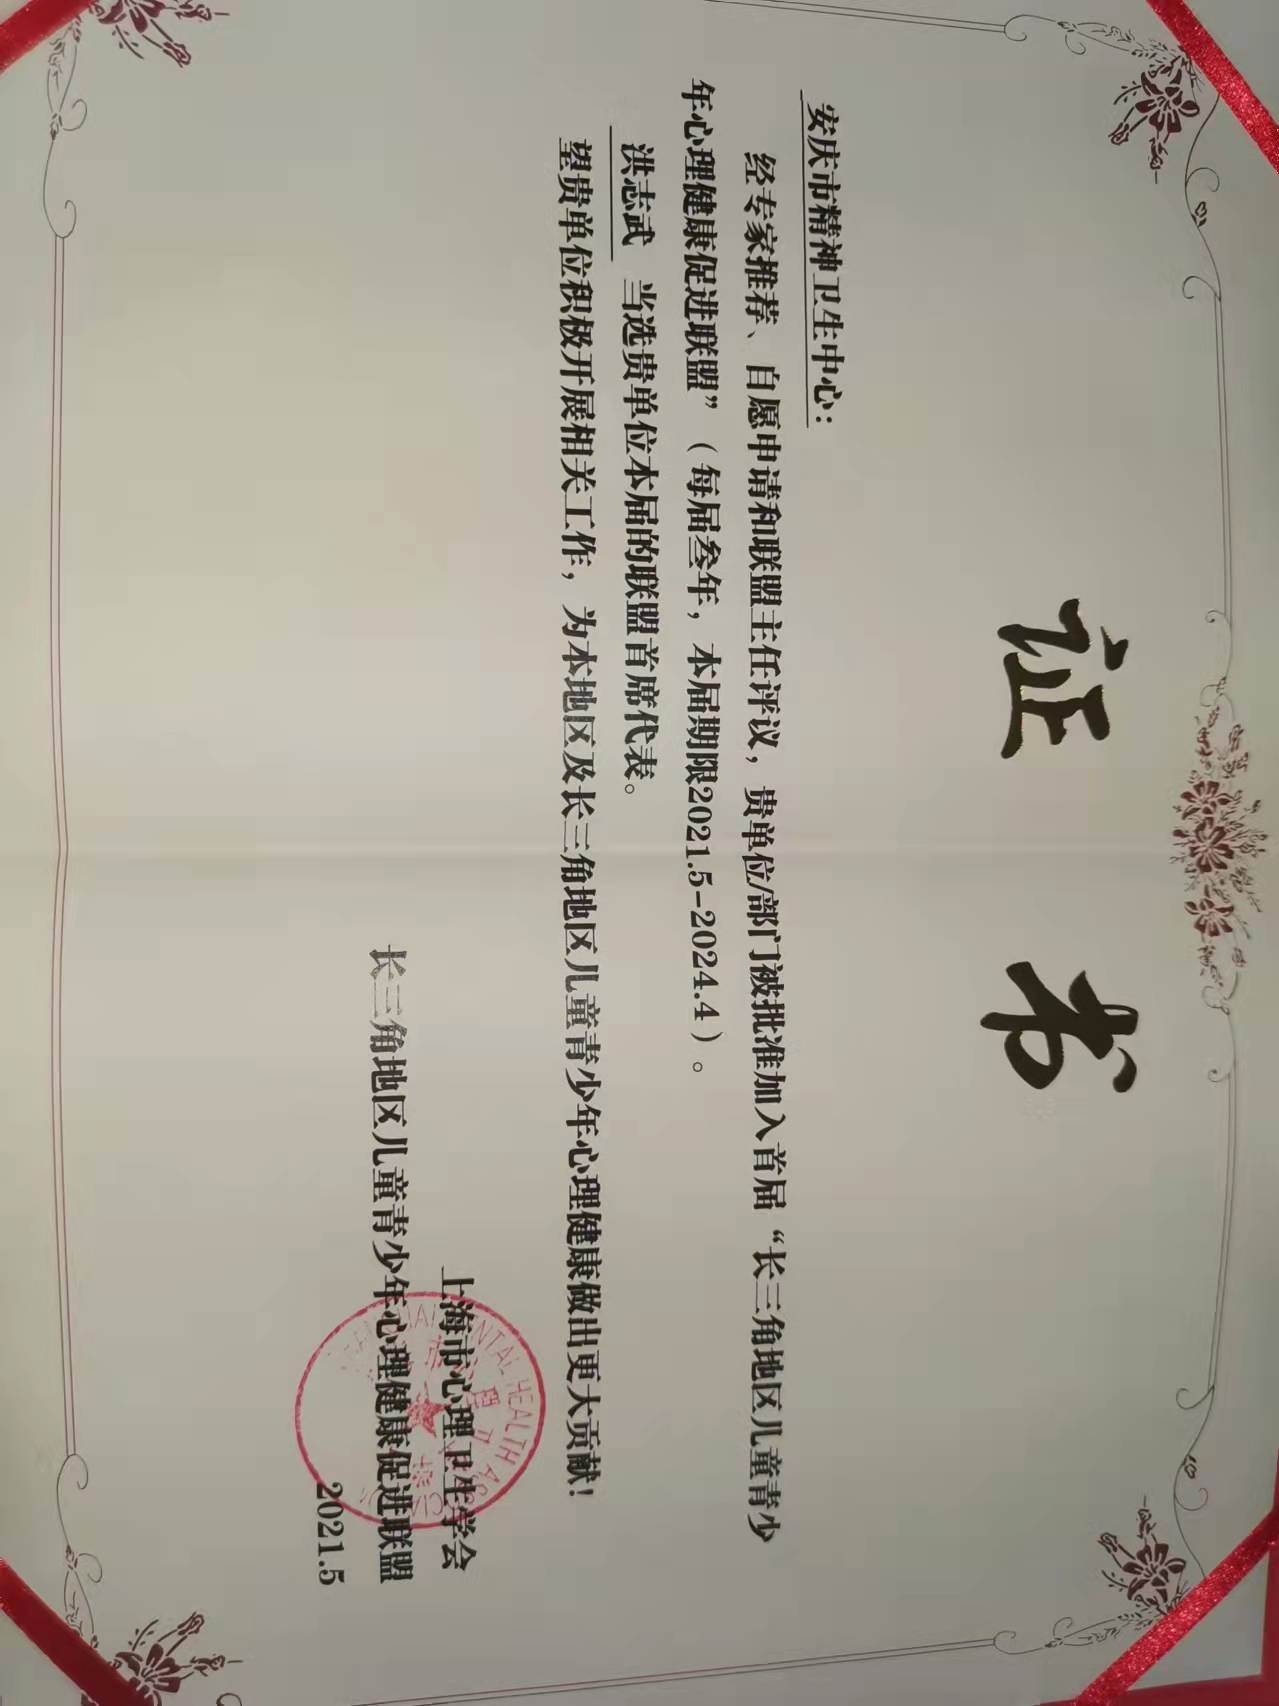 证书
安庆市精神卫生中心：
经专家推荐、自愿申请和联盟主任评议，贵单位/部门被批准加入首届“长三角地区儿童青少
年心理健康促进联盟”（每届叁年，本届期限2021.5-2024.4）。
洪志武 当选贵单位本届的联盟首席代表。
望贵单位积极开展相关工作，为本地区及长三角地区儿童青少年心理健康做出更大贡献！
上海市心理卫生学会
长三角地区儿童青少年心理健康促进联盟
2021.5
MENTAL HEALTH